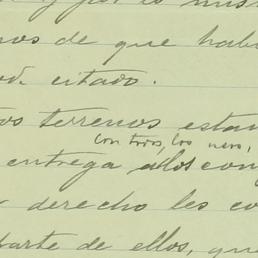 y por lo mis
nos de que hab
od. citado.
os terrenos estan
con todos los usos,
entrega a los con
derecho les co
parte de ellos, que